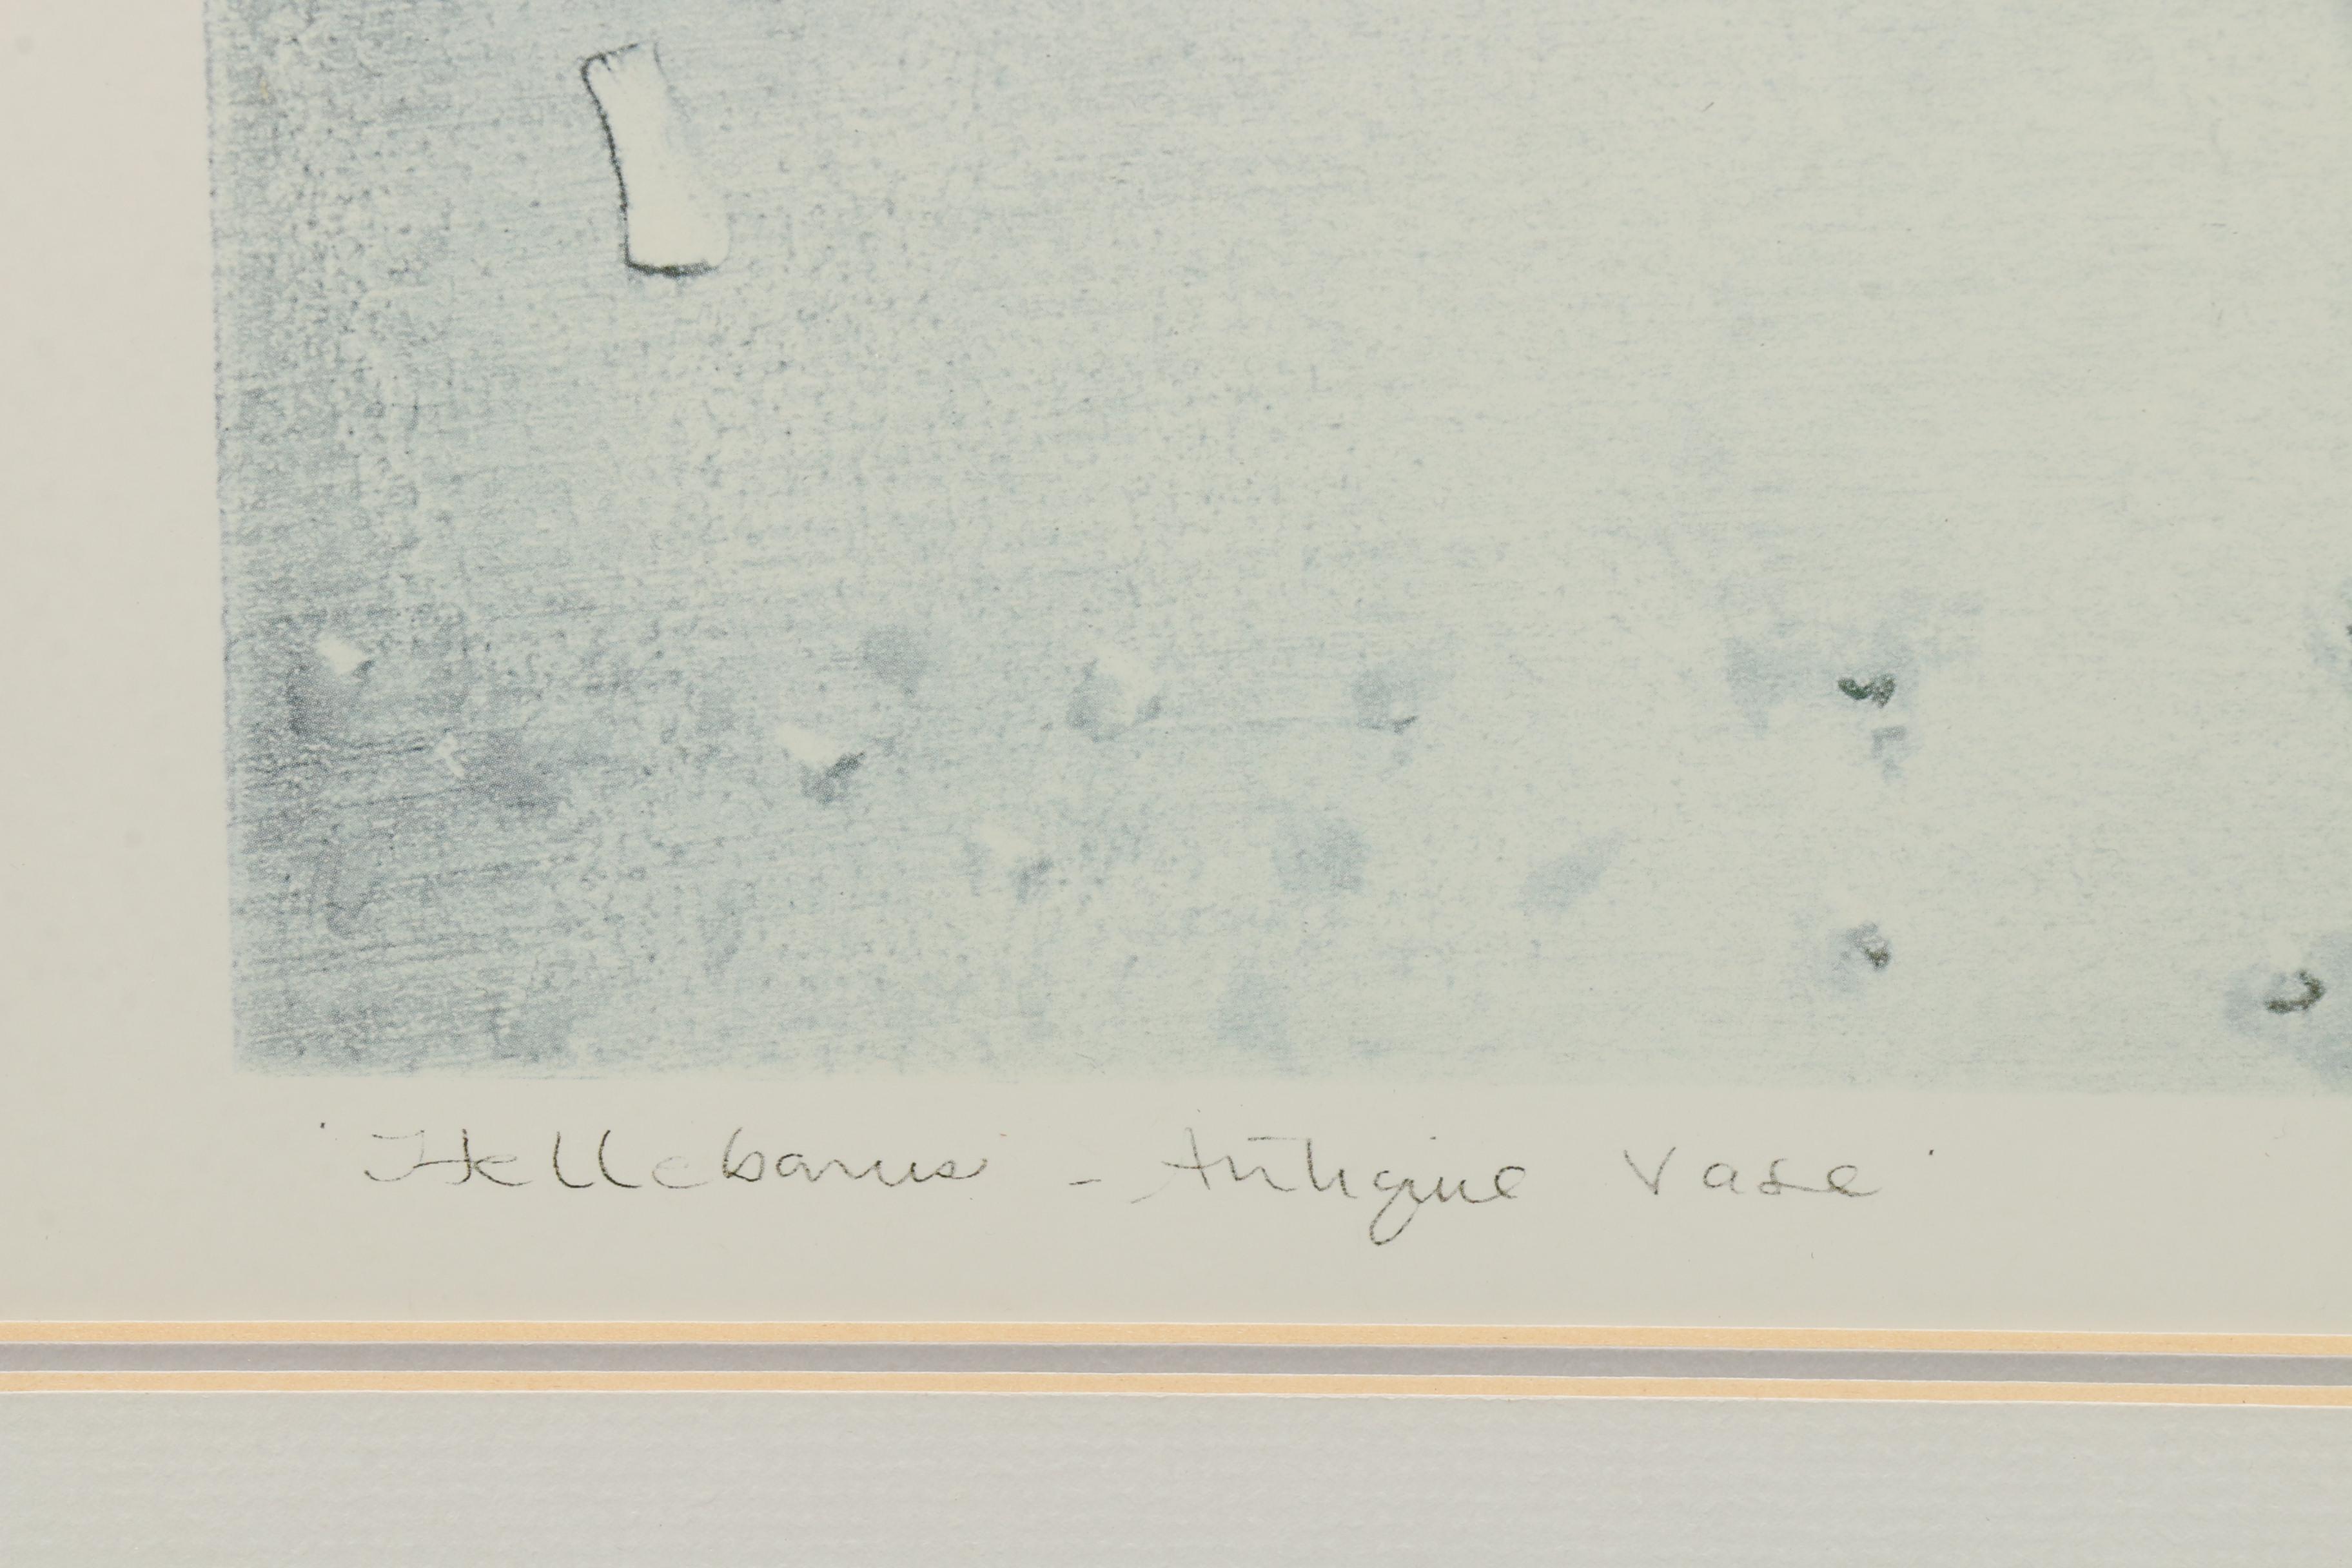 'Hellebarus - Antique Vase'